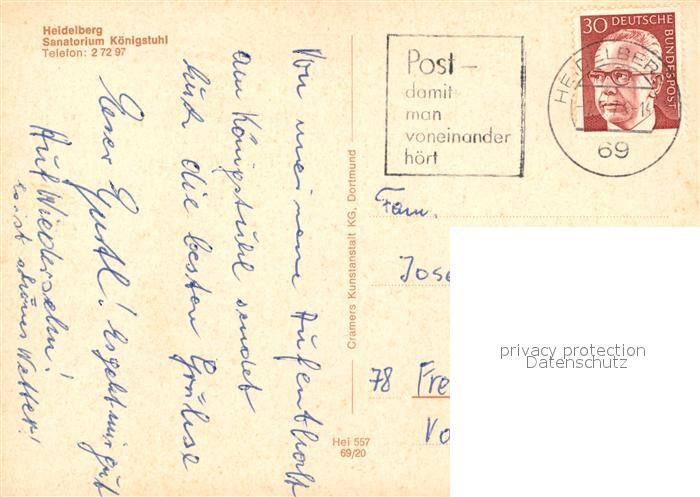 Heidelberg
Sanatorium Königstuhl
Telefon: 2 72 97
Von meinem Aufenthalt
am Königstuhl sendet
Euch die besten Grüße
Eser Gustl! Es geht mir gut
Auf Wiedersehn!
es ist schönes Wetter!
Cramers Kunstanstalt KG, Dortmund
Hei 557
69/20
Post –
damit
man
voneinander
hört
30 DEUTSCHE
BUNDESPOST
HEIDELBERG
69
Fam.
Jose
78 Fre
Vo
privacy protection
Datenschutz